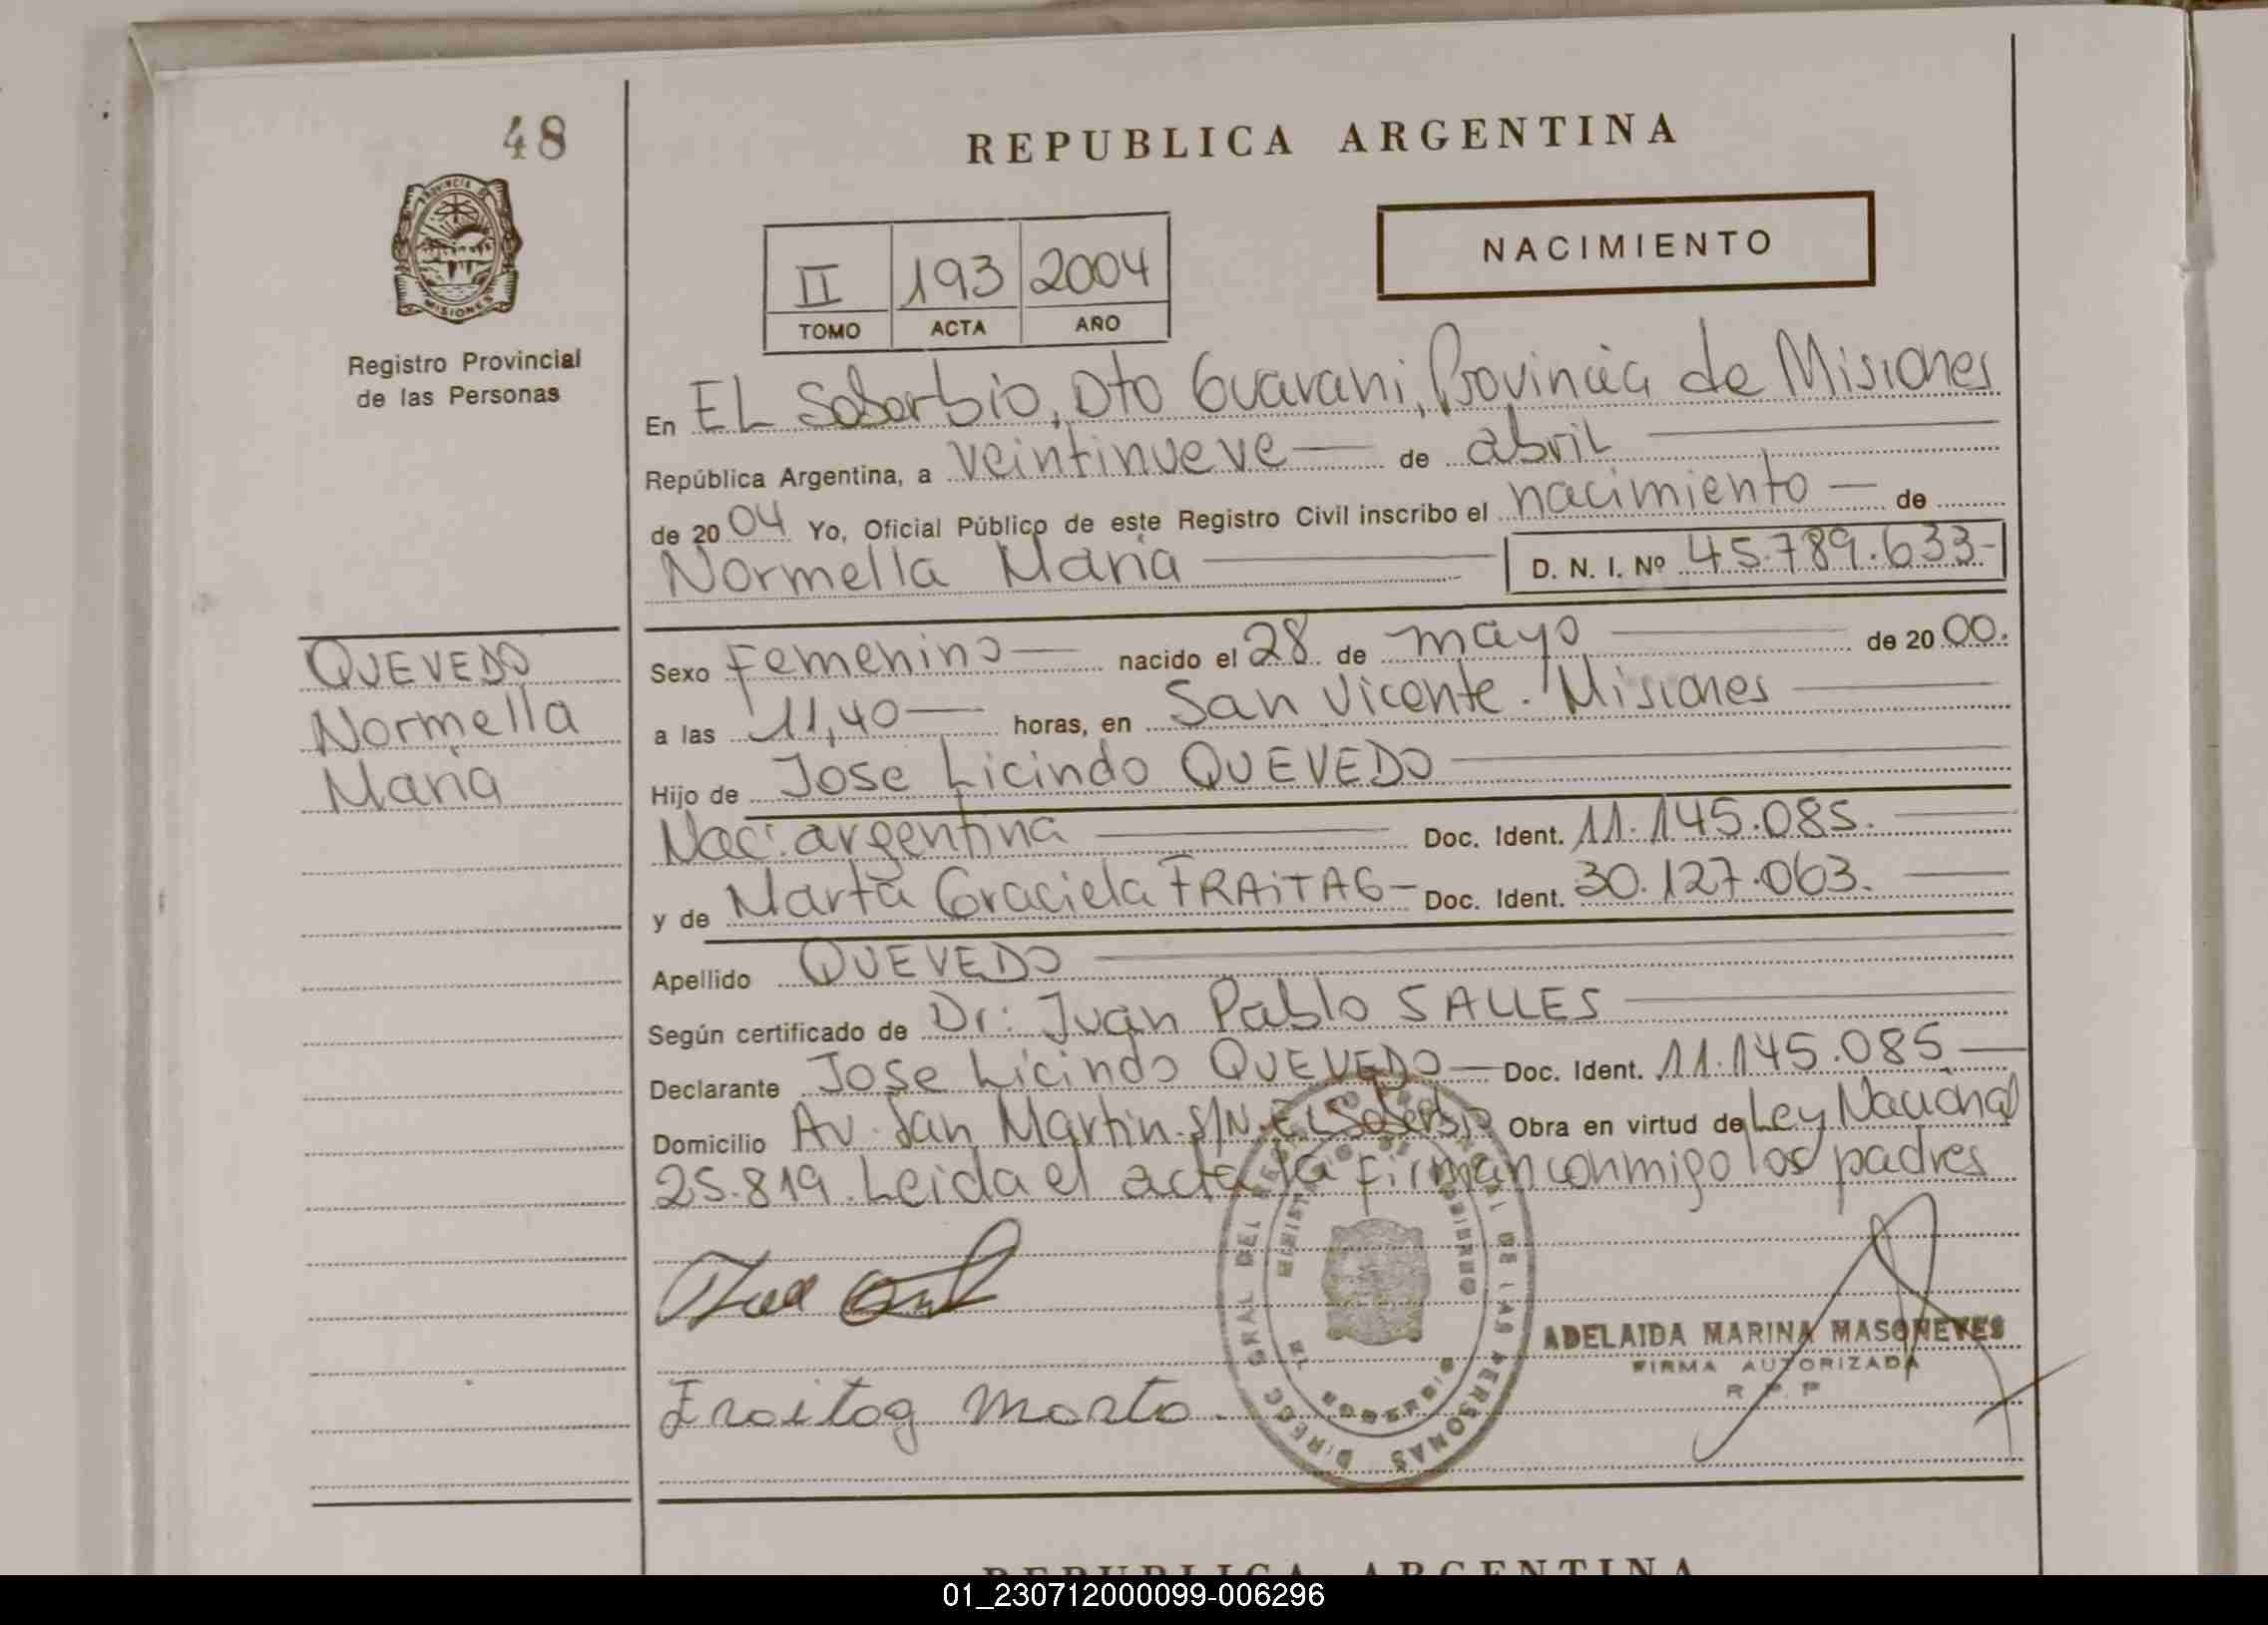 48
REPUBLICA ARGENTINA
PROVINCIA DE
MISIONES
NACIMIENTO
II 193 2004
TOMO ACTA AÑO
Registro Provincial
de las Personas
En EL Soberbio, Dto Guarani, Provincia de Misiones
República Argentina, a veintinueve — de abril
de 2004 Yo, Oficial Público de este Registro Civil inscribo el nacimiento — de
Normella Maria D. N. I. Nº 45.789.633-
QUEVEDO
Normella
Maria
Sexo Femenino — nacido el 28 de mayo de 2000.
a las 11,40 — horas, en San Vicente. Misiones
Hijo de Jose Licindo QUEVEDO
Nac: argentina Doc. Ident. 11.145.085.
y de Marta Graciela FRAiTAG — Doc. Ident. 30.127.063.
Apellido QUEVEDO
Según certificado de Dr: Juan Pablo SALLES
Declarante Jose Licindo QUEVEDO — Doc. Ident. 11.145.085 —
Domicilio Av. San Martin. S/N. EL Soberbio Obra en virtud de Ley Nacional
25.819. Leida el acta la firman conmigo los padres
DIRECC GRAL DEL DE LAS PERSONAS
GOBIERNO
EL SOBERBIO
ADELAIDA MARINA MASONEVES
FIRMA AUTORIZADA
R. P. P
Fraitag Marta.
REPUBLICA ARGENTINA
01_230712000099-006296